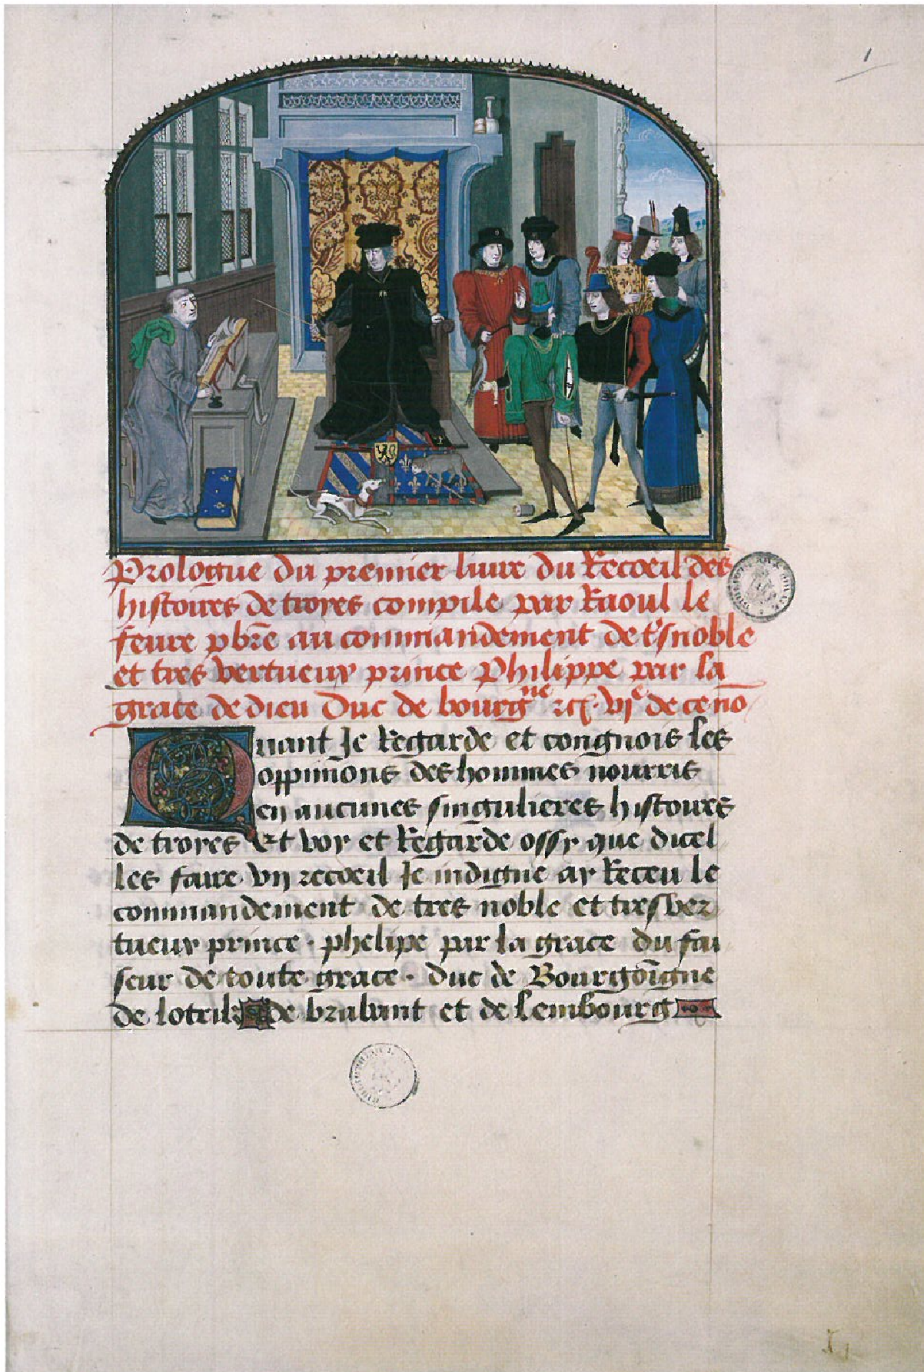 1
Prologue du premier liure du Recoeil des
histoires de troyes compile par Raoul le
feure pbr̄e au commandement de tsnoble
et tres vertueux prince Philippe par la
grace de dieu Duc de bourgne xxx. vje de ce no
Quant Je Regarde et congnois les
oppinions des hommes nourris
en aucunes singulieres histoires
de troyes Et voy et Regarde ossy que dicel
les faire vn recoeil Je indigne ay Receu le
commandement de tres noble et tresver
tueux prince . phelipe par la grace du fai
seur de toute grace . duc de Bourgoīgne
de lotrik de brabant et de Lembourg